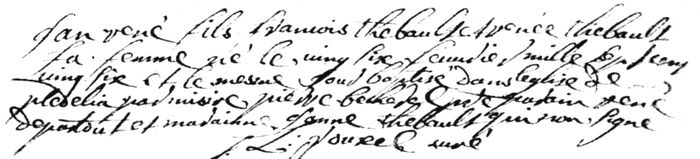 Jan rené fils francois thebault et renée thebault
sa femme né le vingt six feuvrier mille sept cens
vingt six et le mesme jour baptisé dans leglise de
pledelia par missire pierre pretre parain rené
departout et maraine Janne thebault qui non signe
curé